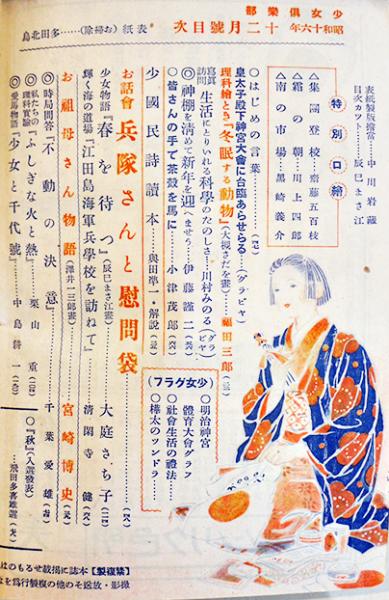 少女倶樂部
昭和十六年 十二月號目次
表紙（お掃除）……多田北烏
表紙製版擔當……中川岩藏
目次カツト……辰巳まさ江
特別口繪
△集團登校……齋藤五百枝
△霜の朝……川上四郎
△南の市場……黒崎義介
◎はじめの言葉
皇太子殿下神宮大會に台臨あらせらる（グラビヤ）
理科繪とき『冬眠する動物』（大槻さだを畫）……福田三郎
寫眞訪問 生活にとりいれる科學のたのしさ……川村みのる（グラビヤ）
◎神棚を清めて新年を迎へませう……伊藤謹二
◎皆さんの手で茶殼を馬に……小津茂郎
少國民詩讀本……與田凖一・解說
お話會 兵隊さんと慰問袋
少女物語『春を待つ』（辰巳まさ江畫）……大庭さち子
輝く海の道場『江田島海軍兵學校を訪ねて』……清閑寺健
お祖母さん物語（澤井一三郎畫）……宮崎博史
◎時局問答『不動の決意』……千葉愛雄
◎私たちの理科『ふしぎな火と熱』……栗山重
◎愛馬物語『少女と千代號』……中島耕一
（少女グラフ）
○明治神宮體育大會グラフ
○社會生活の禮法
○樺太のツンドラ
○『秋』（入選發表）……飛田多喜雄選
【禁複製】本誌に揭載せるものは
撮影・放送その他の複製行爲をな